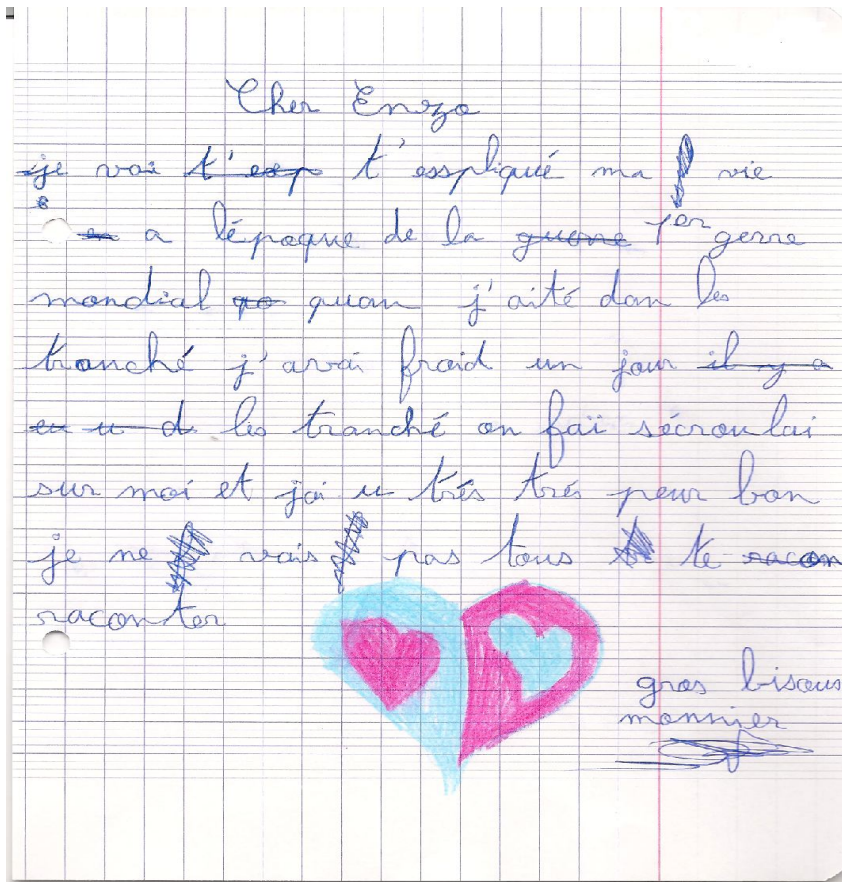 Cher Enzo
je vai t'esspliqué ma vie
a lépoque de la 1er gerre
mondial quan j'aité dan les
tranché j'avai froid un jour
les tranché on faï sécroulai
sur moi et jai u trés trés peur bon
je ne vais pas tous te
raconter
gros bisous
monnier